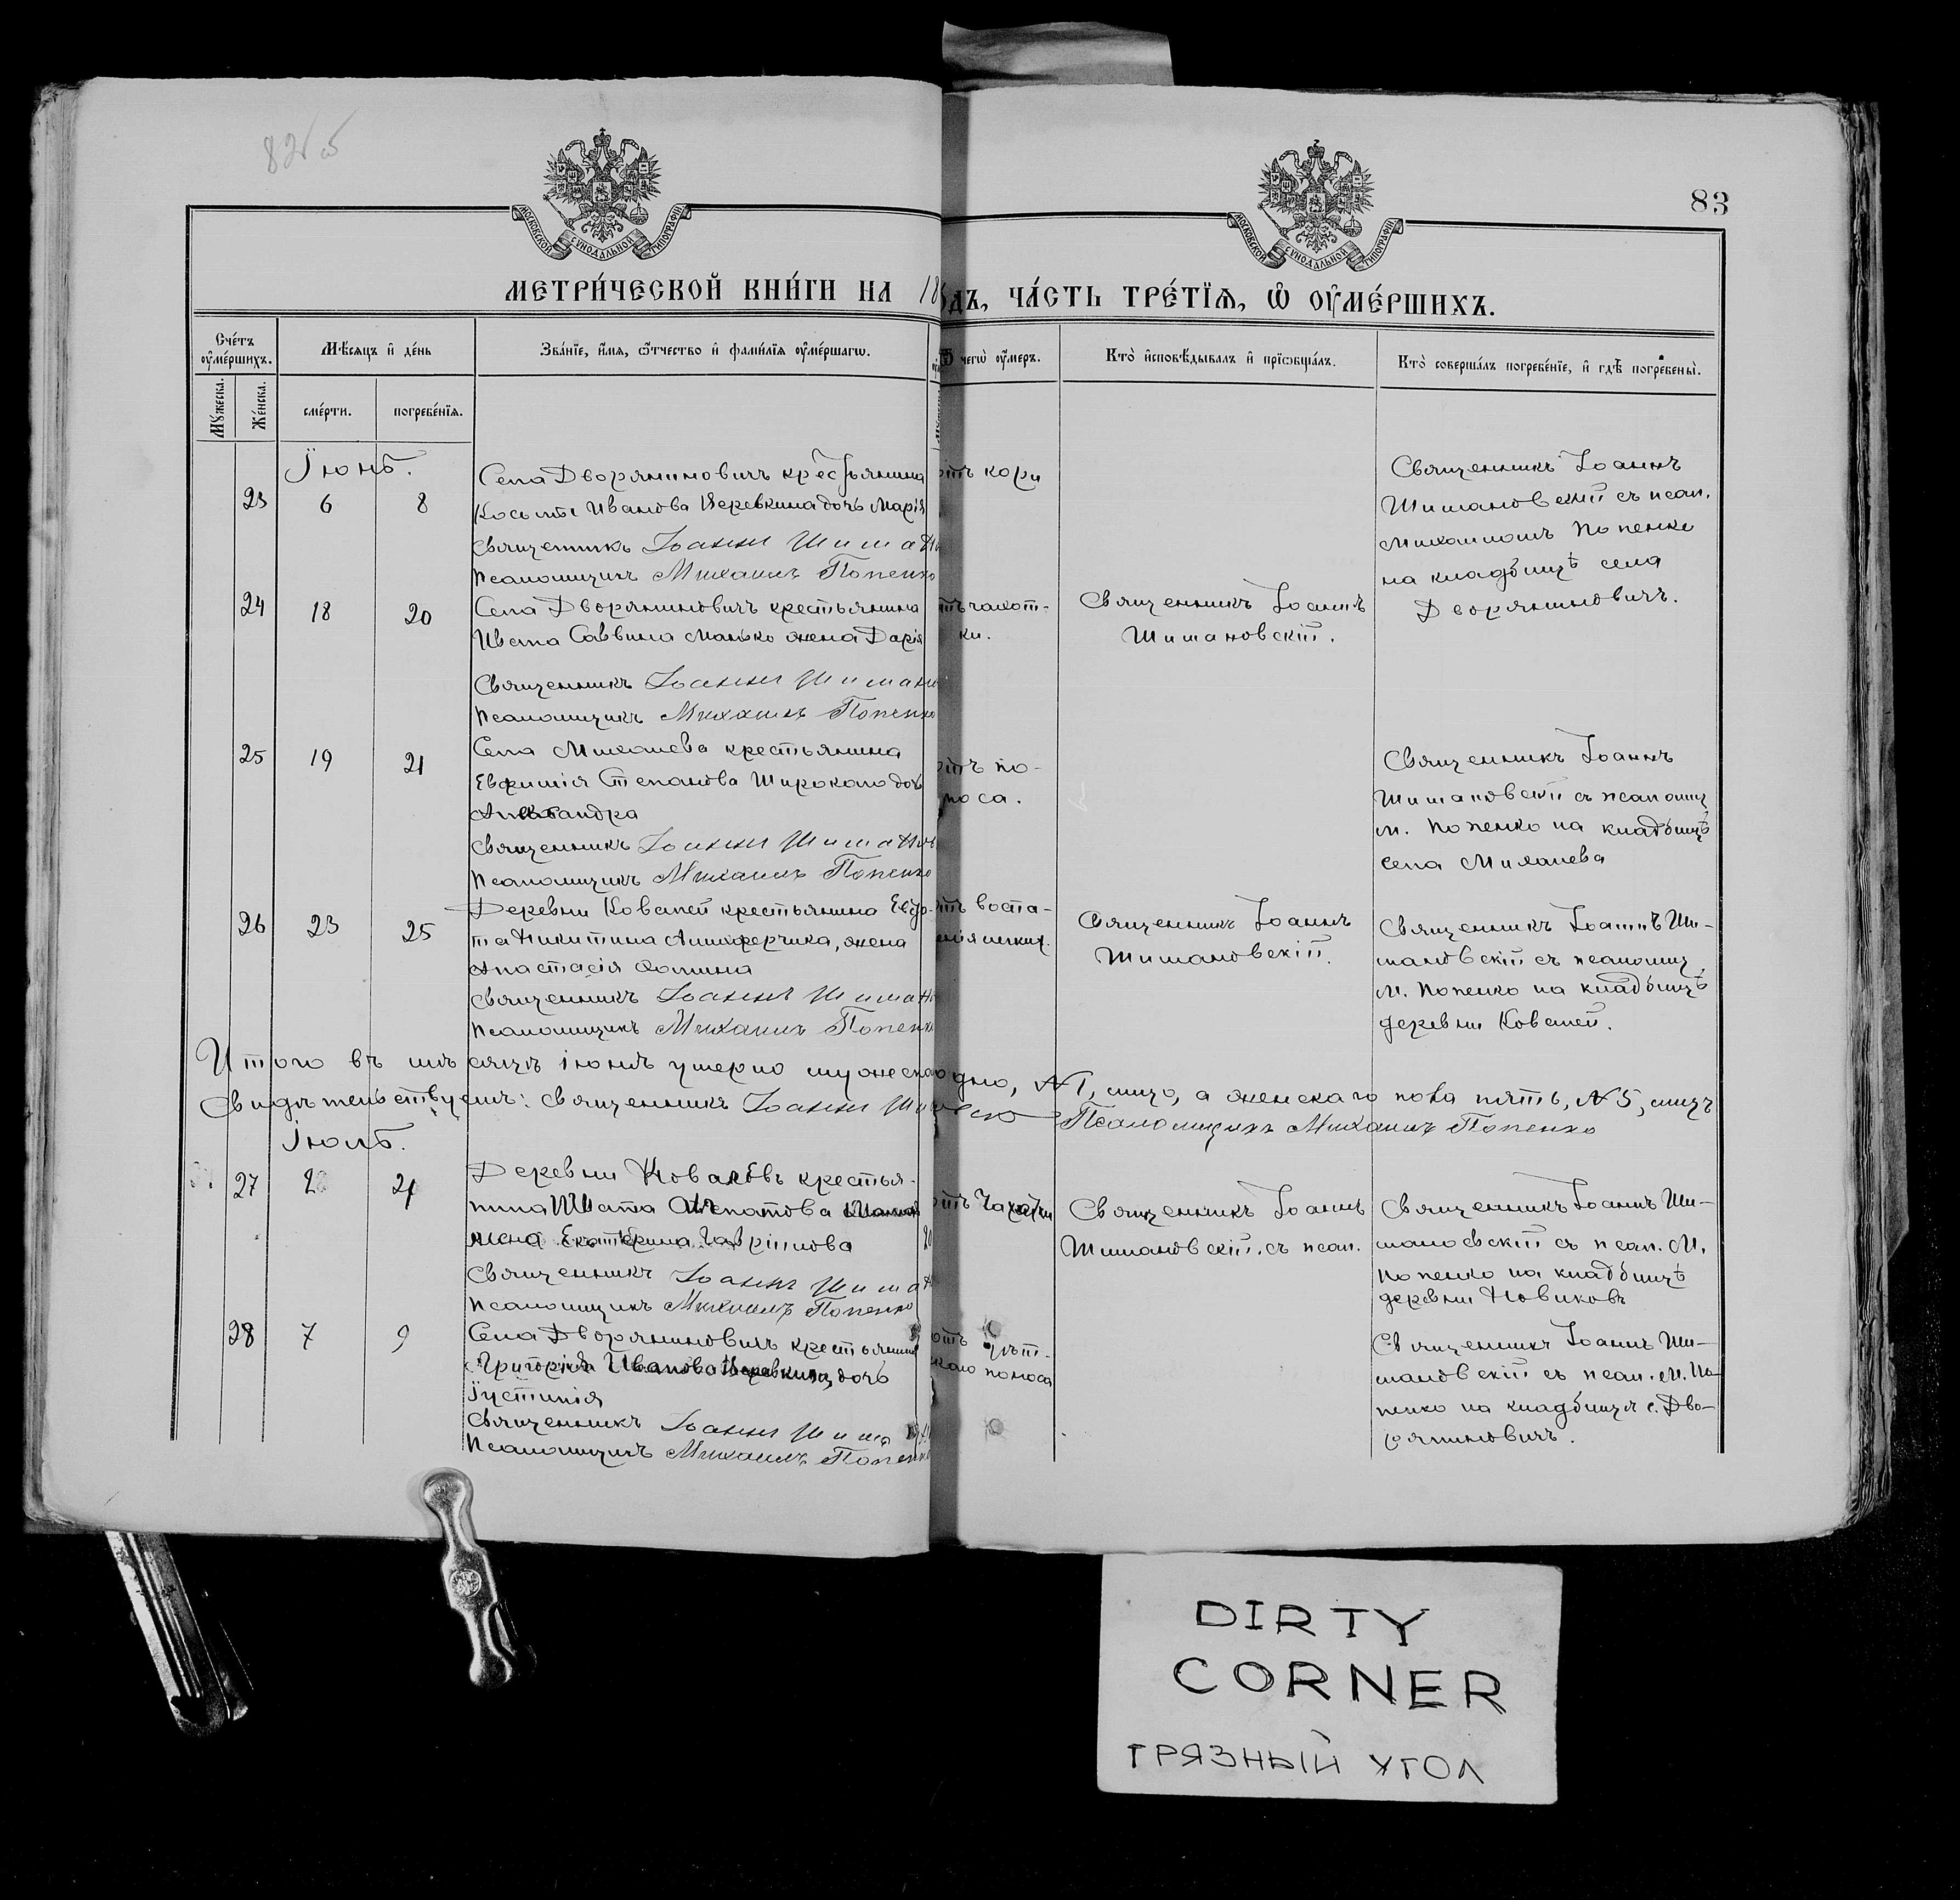 83
МОСКОВСКОЙ СѴНОДАЛЬНОЙ ТИПОГРАФІИ
МОСКОВСКОЙ СѴНОДАЛЬНОЙ ТИПОГРАФІИ
МЕТРИ́ЧЕСКОЙ КНИ́ГИ НА 18
дъ, ЧА́СТЬ ТРЕ́ТЇѦ, Ѡ҆ ОУ҆МЕ́РШИХЪ.
Сче́тъ оу҆ме́ршихъ.
Мѣ́сяцъ и҆ де́нь
Зва́нїе, и҆́мя, ѻ҆́тчество и҆ фами́лїя оу҆ме́ршагѡ.
Ѿ чегѡ̀ оу҆́меръ.
Кто̀ и҆сповѣ́дывалъ и҆ прїѡбща́лъ.
Кто̀ соверша́лъ погребе́нїе, и҆ гдѣ̀ погребены̀.
Мꙋ́жеска.
Же́нска.
сме́рти.
погребе́нїя.
Іюнь.
23
6
8
Села Дворяниновичъ крестьянина
Косьмы Иванова Веревкина дочь Марія
Священникъ Іоаннъ Шиман
Псаломщикъ Михаилъ Попенко
отъ кори
Священникъ Іоаннъ
Шимановскій съ псал.
Михаиломъ Попенко
на кладбищѣ села
Дворяниновичъ.
24
18
20
Села Дворяниновичъ крестьянина
Ивана Саввина Манько жена Дарія
Священникъ Іоаннъ Шиман
Псаломщикъ Михаилъ Попенко
отъ чахот-
ки.
Священникъ Іоаннъ
Шимановскій.
25
19
21
Села Михалева крестьянина
Евфимія Степанова дочь
Александра
Священникъ Іоаннъ Шиман
Псаломщикъ Михаилъ Попенко
отъ по-
носа.
Священникъ Іоаннъ
Шимановскій съ псаломщ
М. Попенко на кладбищѣ
села Михалева
26
23
25
Деревни Ковалей крестьянина
Никитина жена
Анастасія
Священникъ Іоаннъ Шиман
Псаломщикъ Михаилъ Попенко
отъ воспа-
енія легких.
Священникъ Іоаннъ
Шимановскій.
Священникъ Іоаннъ Ши-
мановскій съ псаломщ
М. Попенко на кладбищѣ
деревни Ковалей.
Итого въ мѣсяцѣ іюнѣ умерло мужеска одно, №1, лицо, а женскаго пола пять, №5, лицъ
Свидѣтельствуемъ: Священникъ Іоаннъ Псаломщикъ Михаилъ Попенко
Іюль.
27
2
4
Деревни крестья-
нина
жена Екатерина Гавріилова
Священникъ Іоаннъ Шиман
Псаломщикъ Михаилъ Попенко
отъ Чахотки
Священникъ Іоаннъ
Шимановскій. съ псал.
Священникъ Іоаннъ Ши-
мановскій съ псал. М.
Попенко на кладбищѣ
деревни Новиковъ
28
7
9
Села Дворяниновичъ крестьянина
Григорія Иванова Веревкина, дочь
Іустинія
Священникъ Іоаннъ Шима
Псаломщикъ Михаилъ Попенко
отъ
поноса
Священникъ Іоаннъ Ши-
мановскій съ псал. М. По-
пенко на кладбищѣ с. Дво-
ряниновичъ.
DIRTY
CORNER
ГРЯЗНЫЙ УГОЛ